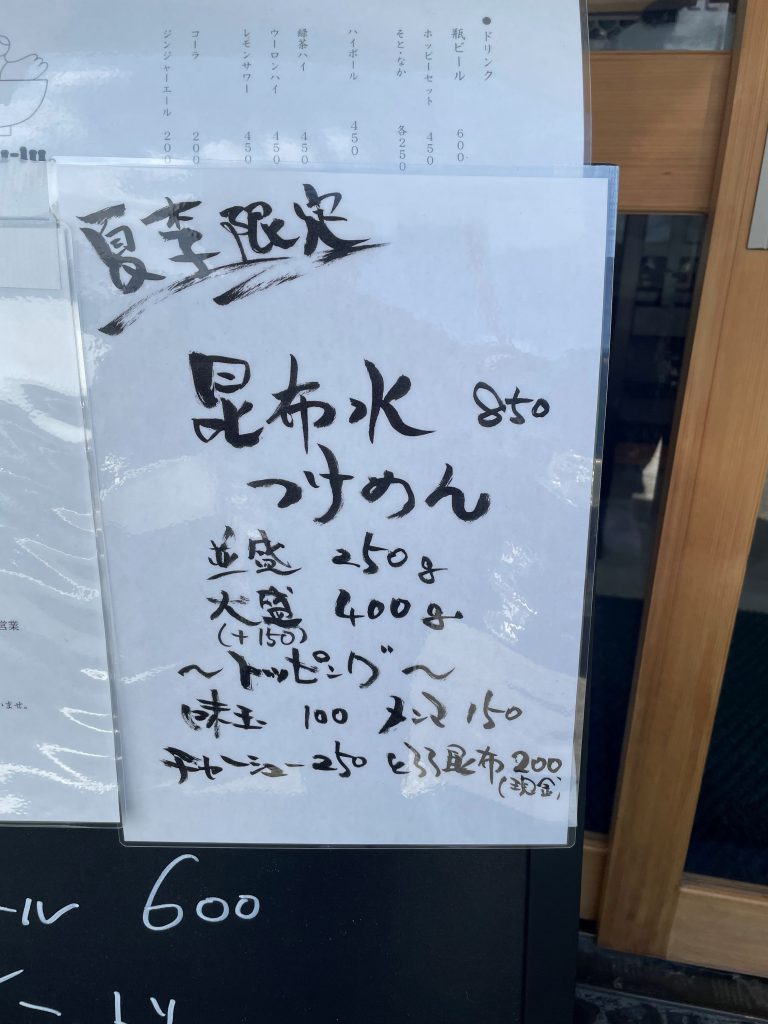 ●ドリンク
瓶ビール 600
ホッピーセット 450
そと・なか 各250
ハイボール 450
緑茶ハイ 450
ウーロンハイ 450
レモンサワー 450
コーラ 200
ジンジャーエール 200
夏季限定
昆布水 850
つけめん
並盛 250g
大盛 400g
(+150)
〜トッピング〜
味玉 100 メンマ 150
チャーシュー250 とろろ昆布200
(現金)
営業
いませ。
ール 600